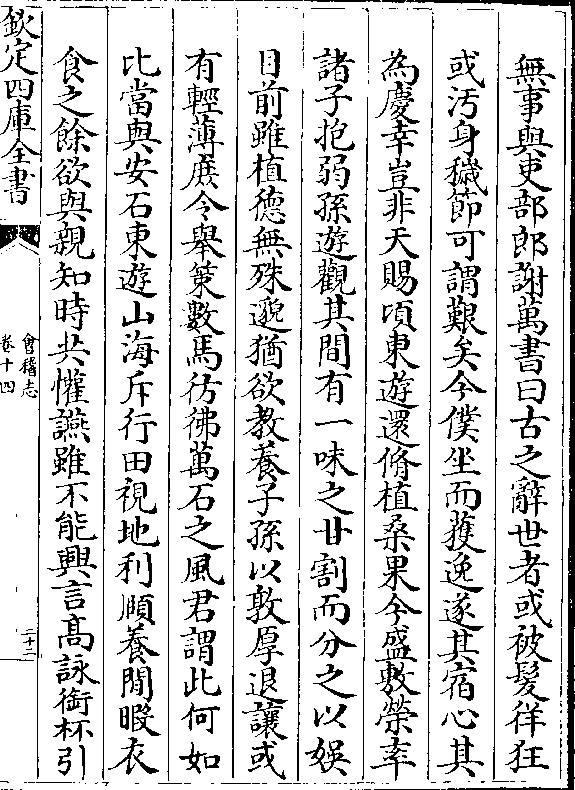 無事與吏部郎謝萬書曰古之辭世者或被髮徉狂
或汚身穢節可謂艱矣今僕坐而獲逸遂其宿心其
為慶幸豈非天賜頃東遊還脩植桑果今盛敷榮率
諸子抱弱孫遊觀其間有一味之甘割而分之以娛
目前雖植德無殊邈猶欲教養子孫以敦厚退讓或
有輕薄庶令舉策數馬彷彿萬石之風君謂此何如
比當與安石東遊山海斥行田視地利頤養閒暇衣
食之餘欲與親知時共懽讌雖不能興言髙詠銜杯引
欽定四庫全書
會稽志
卷十四
二十二